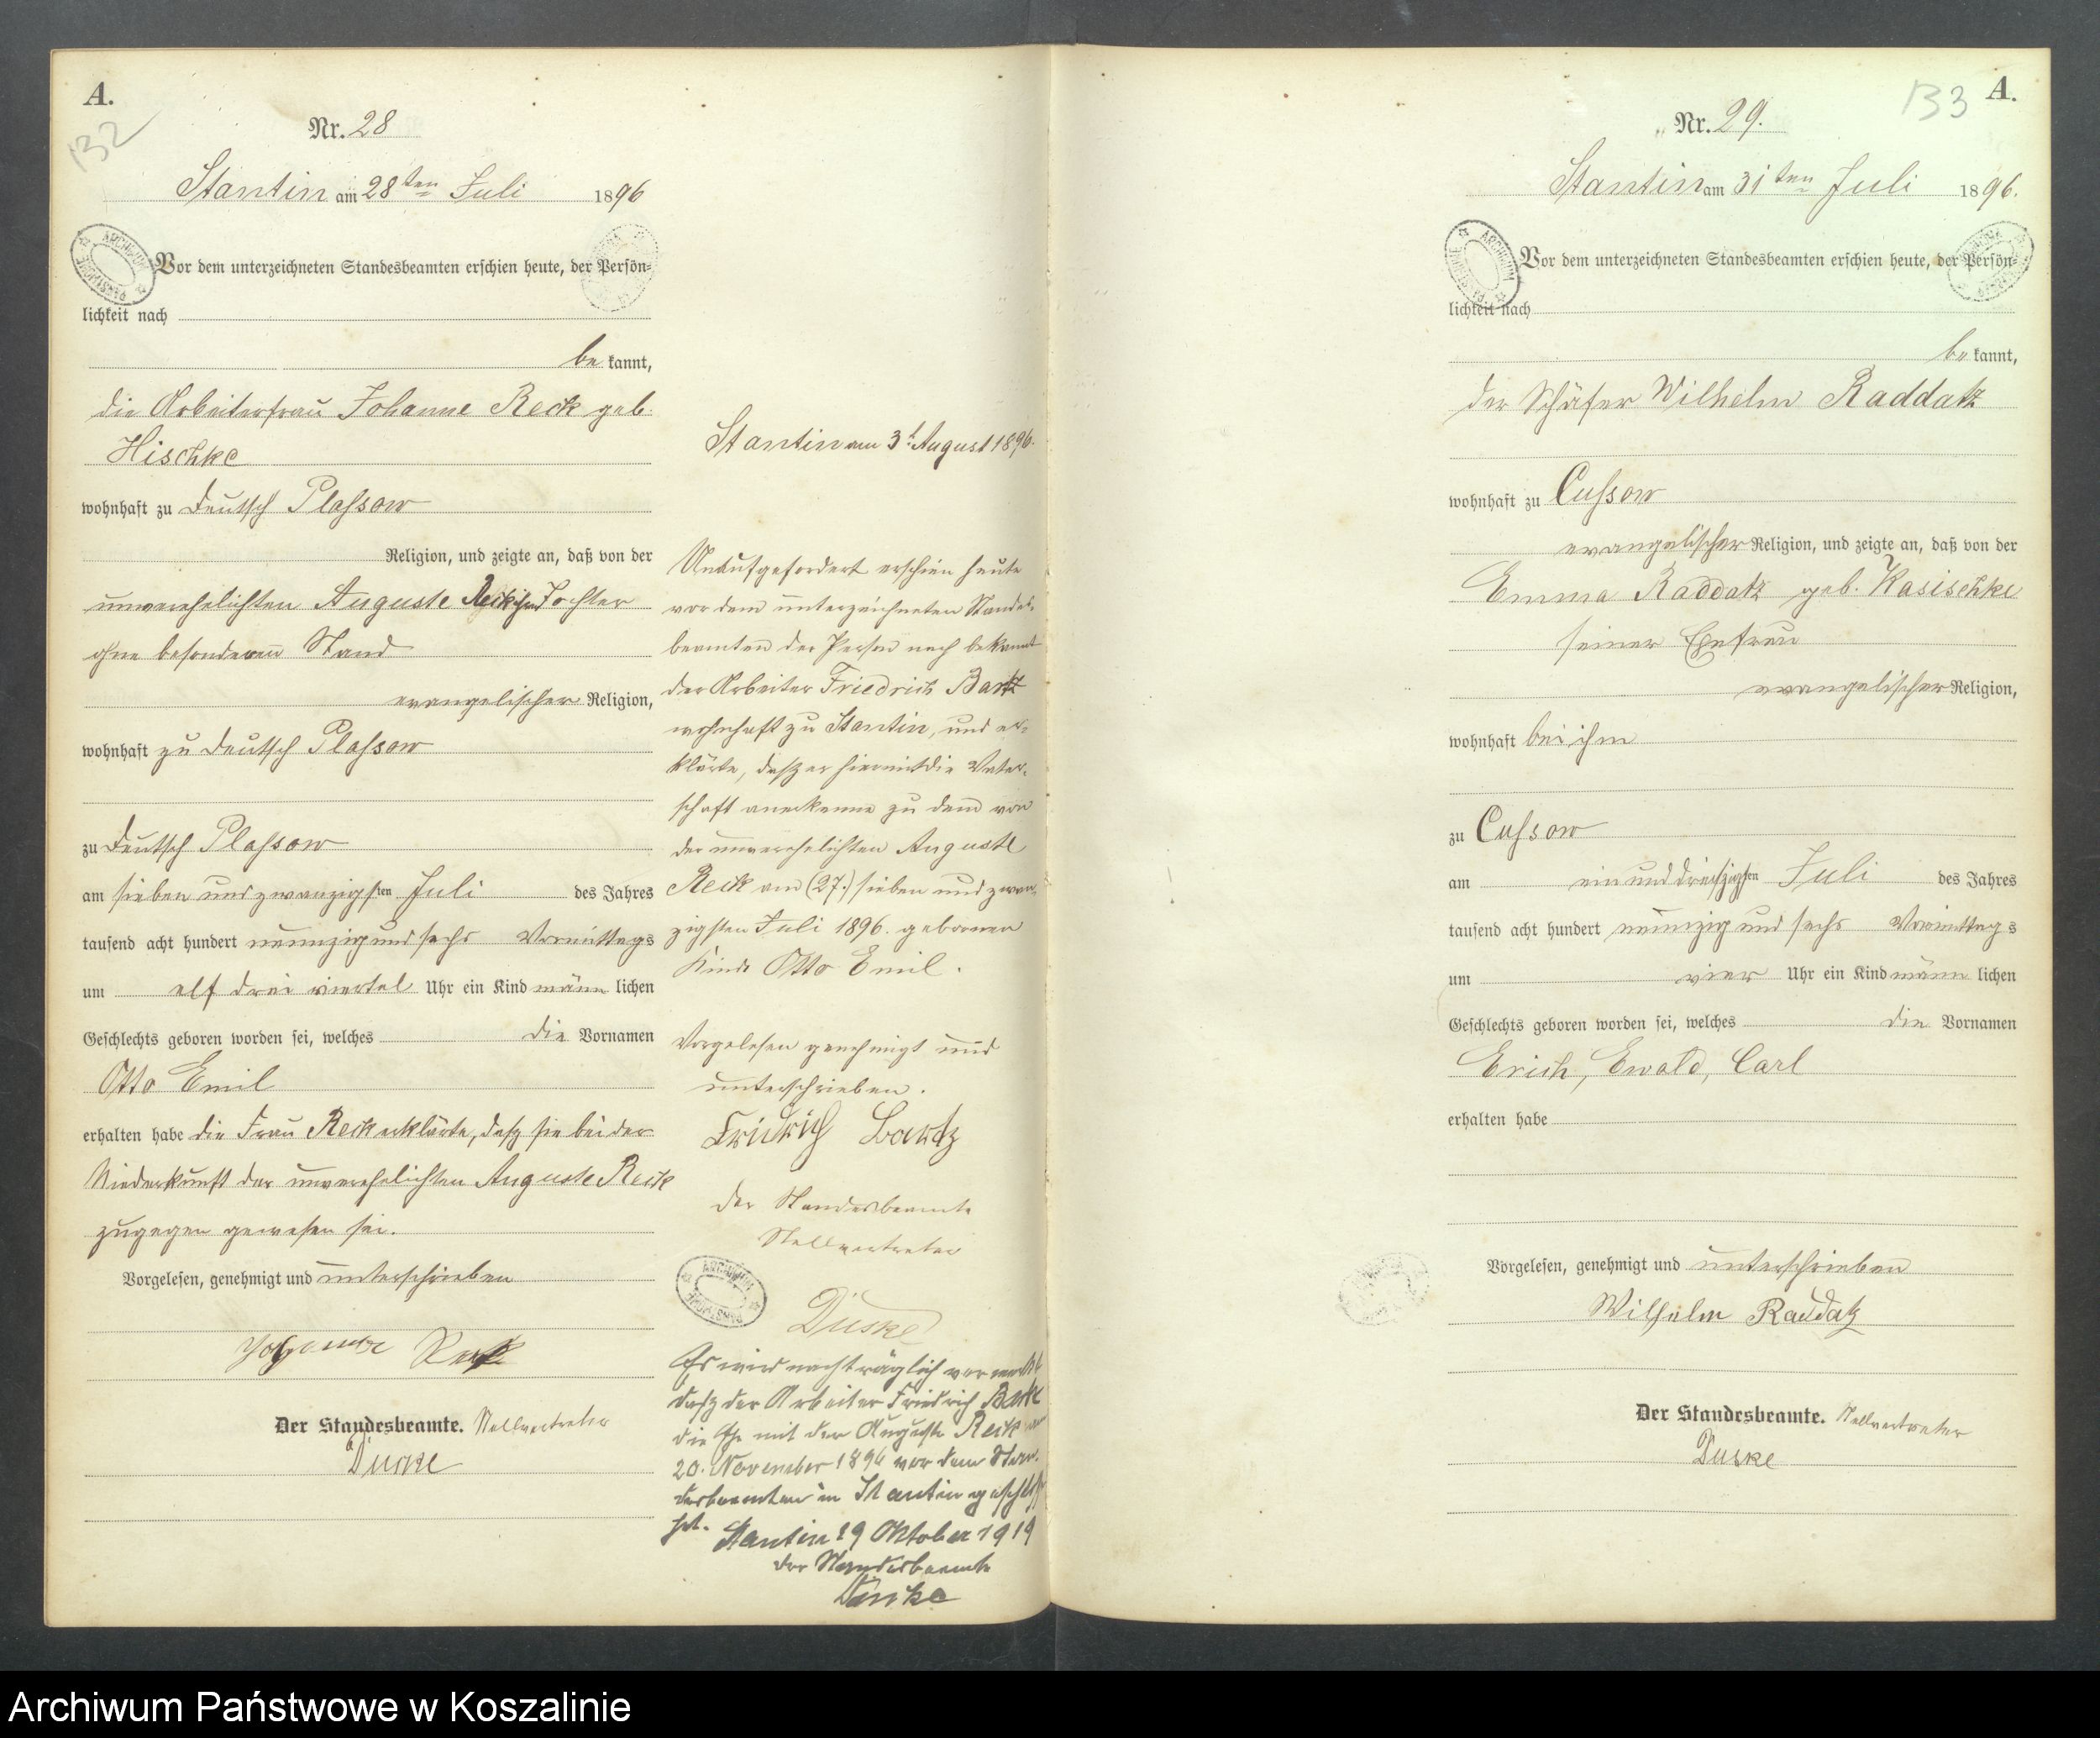 A.
132
Nr. 28
Stantin am 28ten Juli 1896
Vor dem unterzeichneten Standesbeamten erschien heute, der Persön=
lichkeit nach
be kannt,
die Arbeiterfrau Johanne Reck geb.
Hischke
wohnhaft zu Deutsch Plassow
Religion, und zeigte an, daß von der
unverehelichten Auguste Reck ihrer Tochter
ohne besonderen Stand
evangelischer Religion,
wohnhaft zu Deutsch Plassow
zu Deutsch Plassow
am sieben und zwanzigsten Juli des Jahres
tausend acht hundert neunzig und sechs Vormittags
um elf drei viertel Uhr ein Kind männ lichen
Geschlechts geboren worden sei, welches die Vornamen
Otto Emil
erhalten habe die Frau Reck erklärte, daß sie bei der
Niederkunft der unverehelichten Auguste Reck
zugegen gewesen sei.
Vorgelesen, genehmigt und unterschrieben
Johanne Reck
Der Standesbeamte. Stellvertreter
Duske
Stantin am 3t. August 1896.
Unaufgefordert erschien heute
vor dem unterzeichneten Standes-
beamten der Person nach bekannt
der Arbeiter Friedrich Bartz
wohnhaft zu Stantin, und er-
klärte, daß er hiermit die Vater-
schaft anerkenne zu dem von
der unverehelichten Auguste
Reck am (27.) sieben und zwan-
zigsten Juli 1896. geborenen
Kinde Otto Emil.
Vorgelesen genehmigt und
unterschrieben.
Fridrich Bartz
Der Standesbeamte
Stellvertreter
Duske
Es wird nachträglich vermerkt
daß der Arbeiter Friedrich Bartz
die Ehe mit der Auguste Reck am
20. November 1896 vor dem Stan-
desbeamten in Stantin geschlossen
hat. Stantin 29 Oktober 1919
Der Standesbeamte
Duske
133
A.
Nr. 29.
Stantin am 31ten Juli 1896.
Vor dem unterzeichneten Standesbeamten erschien heute, der Persön=
lichkeit nach
be kannt,
der Schäfer Wilhelm Raddatz
wohnhaft zu Cussow
evangelischer Religion, und zeigte an, daß von der
Emma Raddatz geb. Kasischke
seiner Ehefrau
evangelischer Religion,
wohnhaft bei ihm
zu Cussow
am ein und dreißigsten Juli des Jahres
tausend acht hundert neunzig und sechs Vormittags
um vier Uhr ein Kind männ lichen
Geschlechts geboren worden sei, welches die Vornamen
Erich, Ewald, Carl
erhalten habe
Vorgelesen, genehmigt und unterschrieben
Wilhelm Raddatz
Der Standesbeamte. Stellvertreter
Duske
Archiwum Państwowe w Koszalinie